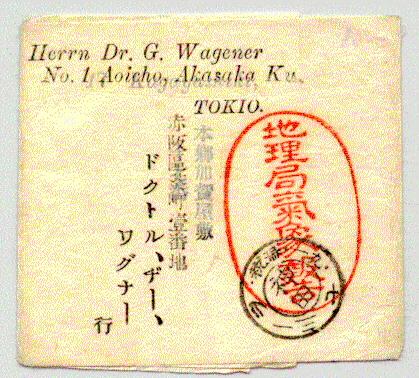 Herrn Dr. G. Wagener
No. 1 Aoicho, Akasaka Ku.
17 Kagayashiki,
TOKIO.
本鄕加賀屋敷
赤阪區葵町壹番地
ドクトル、ヂー、
ワグナー
行
地理局氣象報告